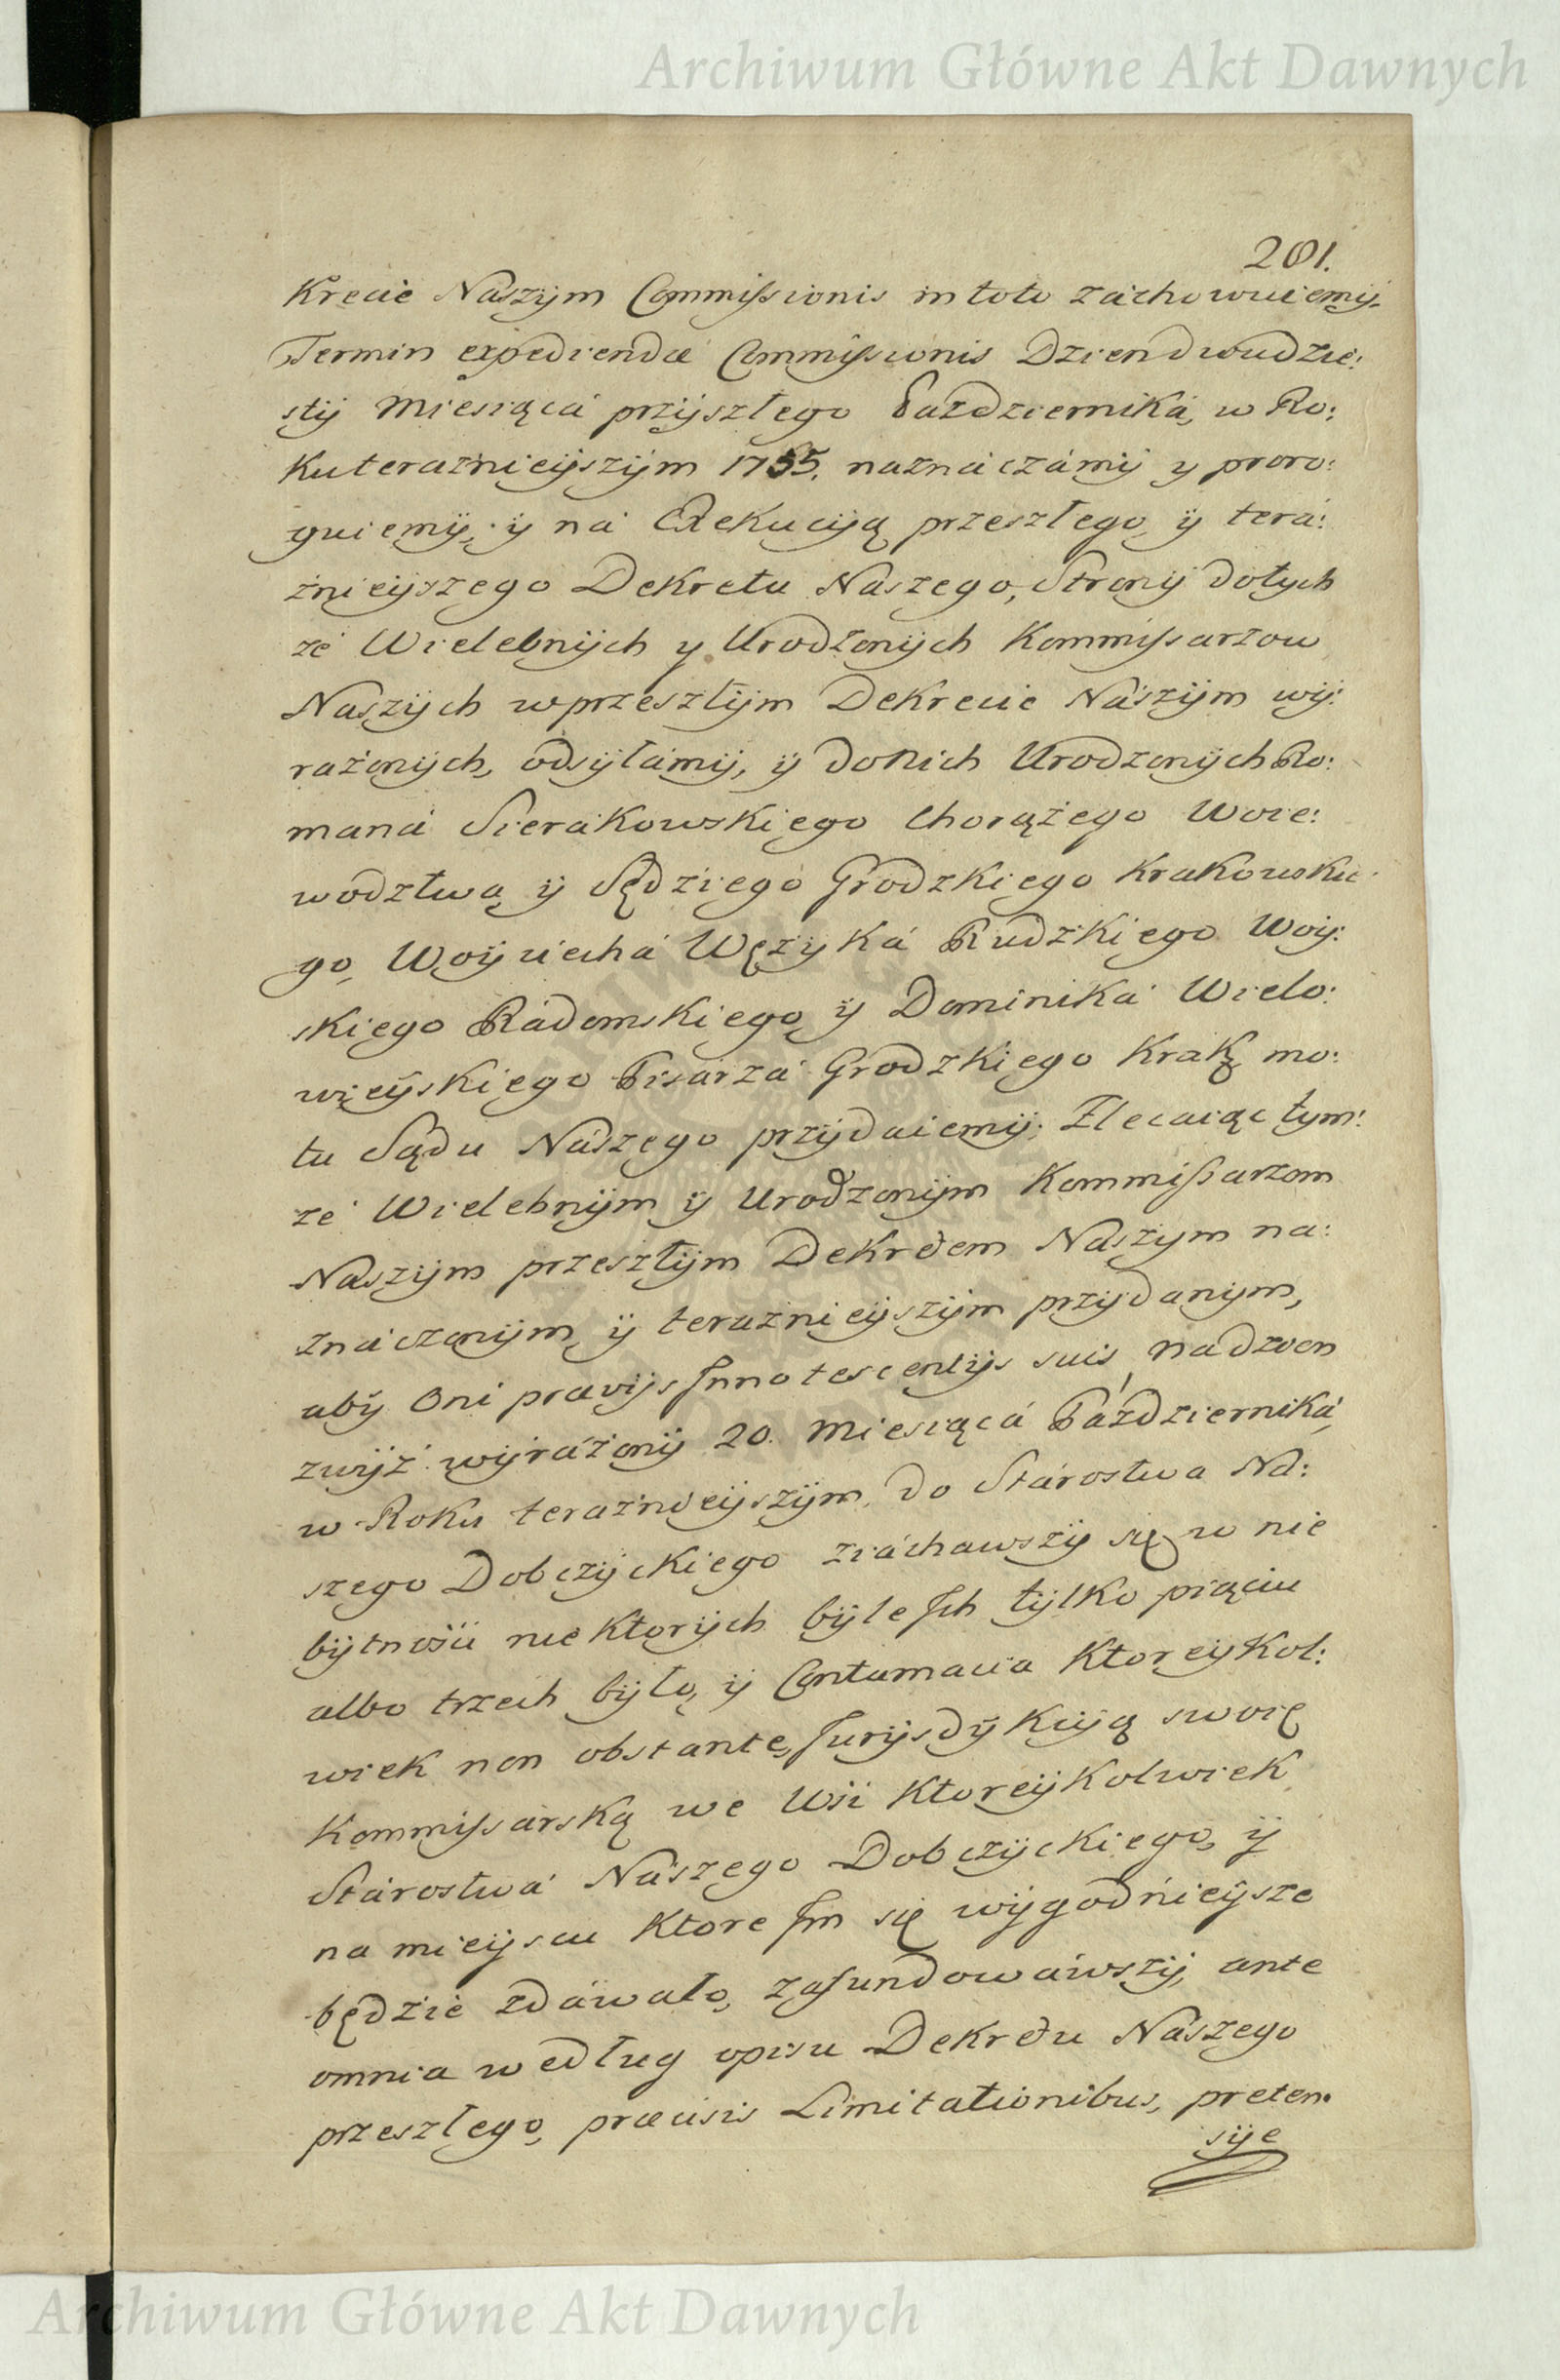 Archiwum Główne Akt Dawnych
201.
Krecie Naszÿm Commissionis in toto záchowuiemÿ.
Termin expediendæ Commissionis Dzien dwudzie:
stÿ Miesiącá przÿszłego Pazdziernika, w Ro:
ku teraznieÿszÿm 1755. naznáczámÿ y proro:
guiemÿ, ÿ ná Exekucÿą przeszłego ÿ terá:
znieÿszego Dekretu Naszego, Stronÿ do tych
ze Wielebnÿch y Urodzonÿch Kommissarzow
Naszÿch w przeszłÿm Dekrecie Nászÿm wÿ:
rażonÿch, odsÿłámÿ, ÿ do Nich Urodzonÿch Ro:
maná Sierakowskiego Chorążego Woie:
wodztwa ÿ Sędziego Grodzkiego Krakowskie
go, Woÿciechá Wężyká Rudzkiego Woÿ:
skiego Rádomskiego ÿ Dominiká Wielo:
wieÿskiego Pisarzá Grodzkiego Krakg mo:
tu Sądu Nászego przÿdaiemÿ; Zlecaiąc tym:
ze Wielebnÿm ÿ Urodzonÿm Kommissarzom
Naszÿm przeszłÿm Dekretem Naszym na:
znáczonÿm ÿ teraznieÿszÿm przÿdanÿm,
abÿ Oni prævÿs Innotescentÿs suis na dzien
zwÿż wÿráżonÿ 20. Miesiącá Pázdzierniká,
w Roku teraznieÿszÿm, do Stárostwa Na:
szego Dobczÿckiego ziáchawszÿ się w nie
bÿtnosci niektorÿch bÿle Ich tÿlko pięciu
albo trzech bÿło, ÿ Contumacia ktoreÿkol:
wiek non obstante, Iurÿsdÿkcÿą swoię
Kommissárską we Wsi ktoreÿkolwiek
Stárostwá Nászego Dobczÿckiego, ÿ
na mieÿscu ktore Im się wÿgodnieÿsze
będzie zdáwało, zafundowáwszÿ, ante
omnia według opisu Dekretu Nászego
przeszłego, præcisis Limitationibus, preten:
sÿe
Archiwum Główne Akt Dawnych